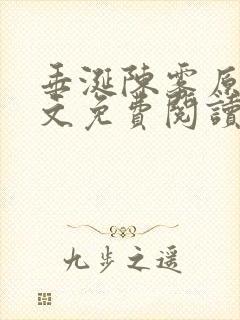 垂涎陳霧原
文免費閱讀
九步之遥